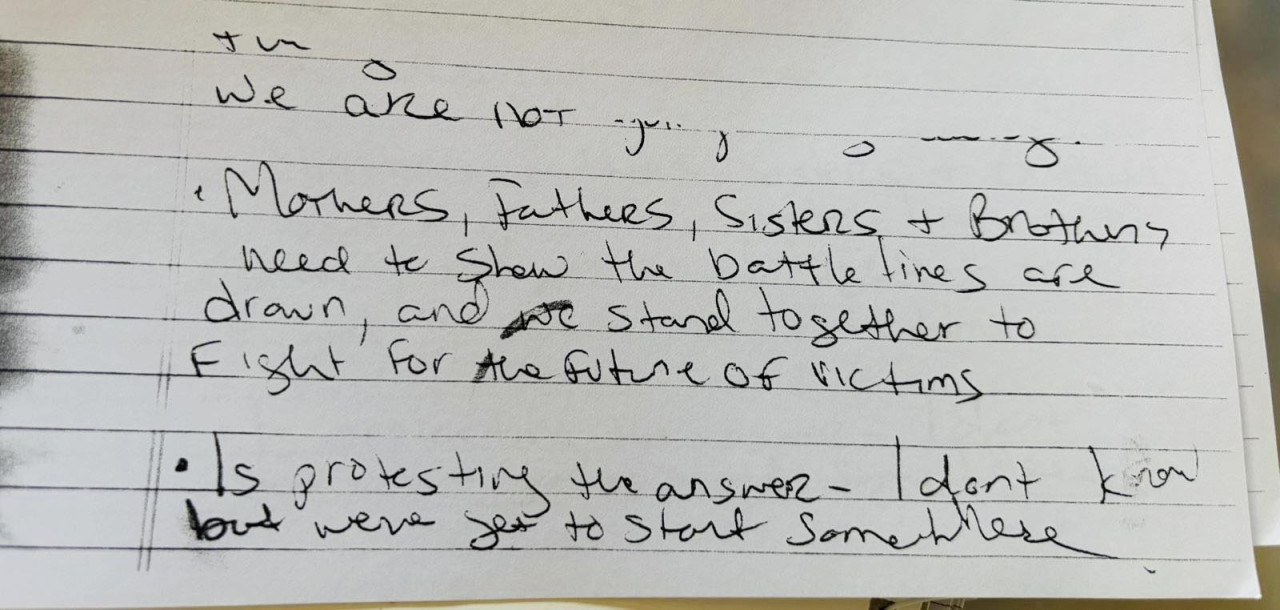 We are not
• Mothers, Fathers, Sisters + Brothers
need to show the battle lines are
drawn, and we stand together to
Fight for the future of victims
• Is protesting the answer - I dont know
but weve get to start somewhere